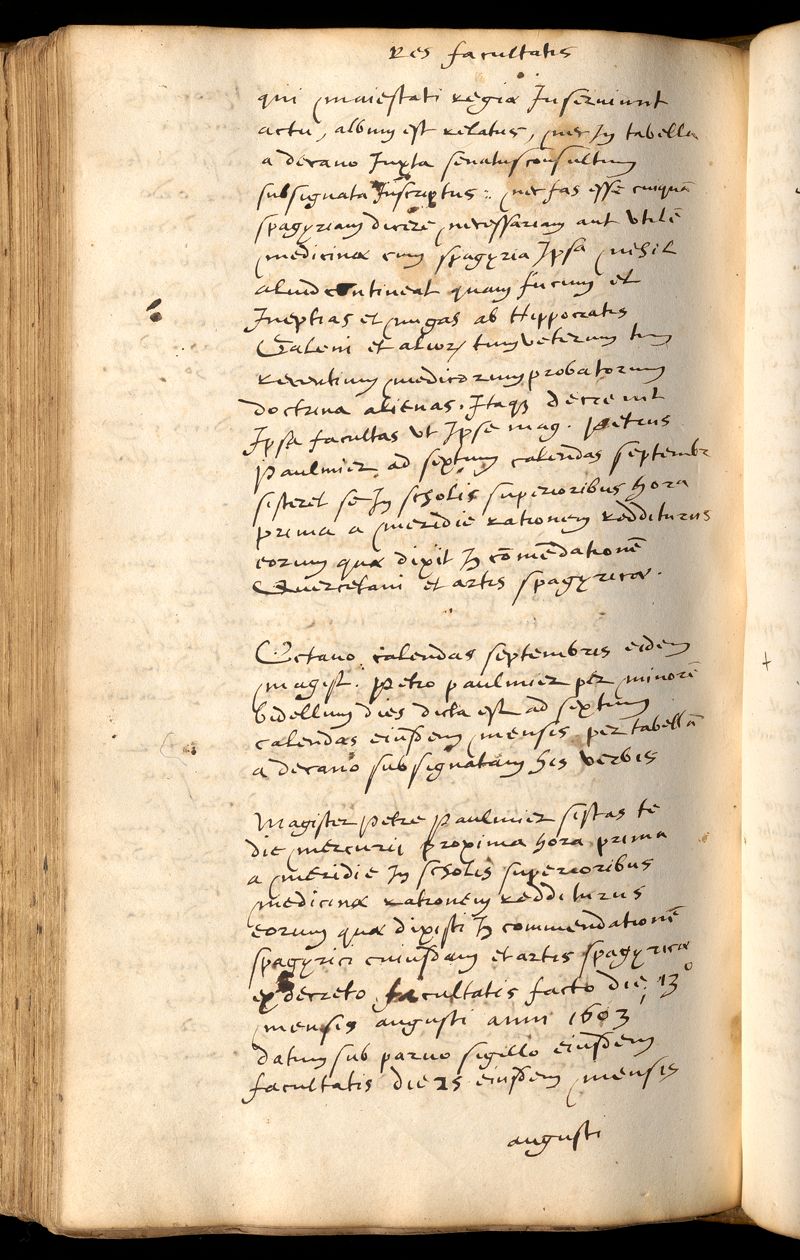 Res facultatis
qui maiestati regiæ Inseruiunt
actu, album est relatus, nec In tabella
a decano Iuxta senatusconsultum
subsignata Inscriptus: nec fas esse cuiquā
spagyriam dicere necessariam aut vtilē
medicinæ cum spagyria Ipsa nihil
aliud contineat quam fucum et
Ineptias et nugas ab Hippocratis
Galeni et alior, tum veterum tum
recentium medicorum probatorum
doctrina alienas. Itaq, decreuit
Ipsa facultas vt Ipse mag. Petrus
Paulmier ad sextum calendas septembr
sisteret se In scholis superioribus hora
prima a meridie rationem redditurus
eorum quæ dixit In cōmēdationē
Quercetani et artis spagyricæ.
Octauo calendas septembris eidem
magist. Petro paulmier per minorē
bidellum dies dicta est ad sextum
calendas eiusdem mensis per tabellā
a decano subsignatam his verbis
Magister Petre Paulmier sistas te
die mercurij proxima hora prima
a meridie In scholis superioribus
medicinæ rationem redditurus
eorum quæ dixisti In commendationē
spagyrici cuiusdam et artis spagyricæ
ex decreto facultatis facto die 13°
mensis augusti anni 1603
datum sub paruo sigillo eiusdem
facultatis die 25 eiusdem mensis
augusti